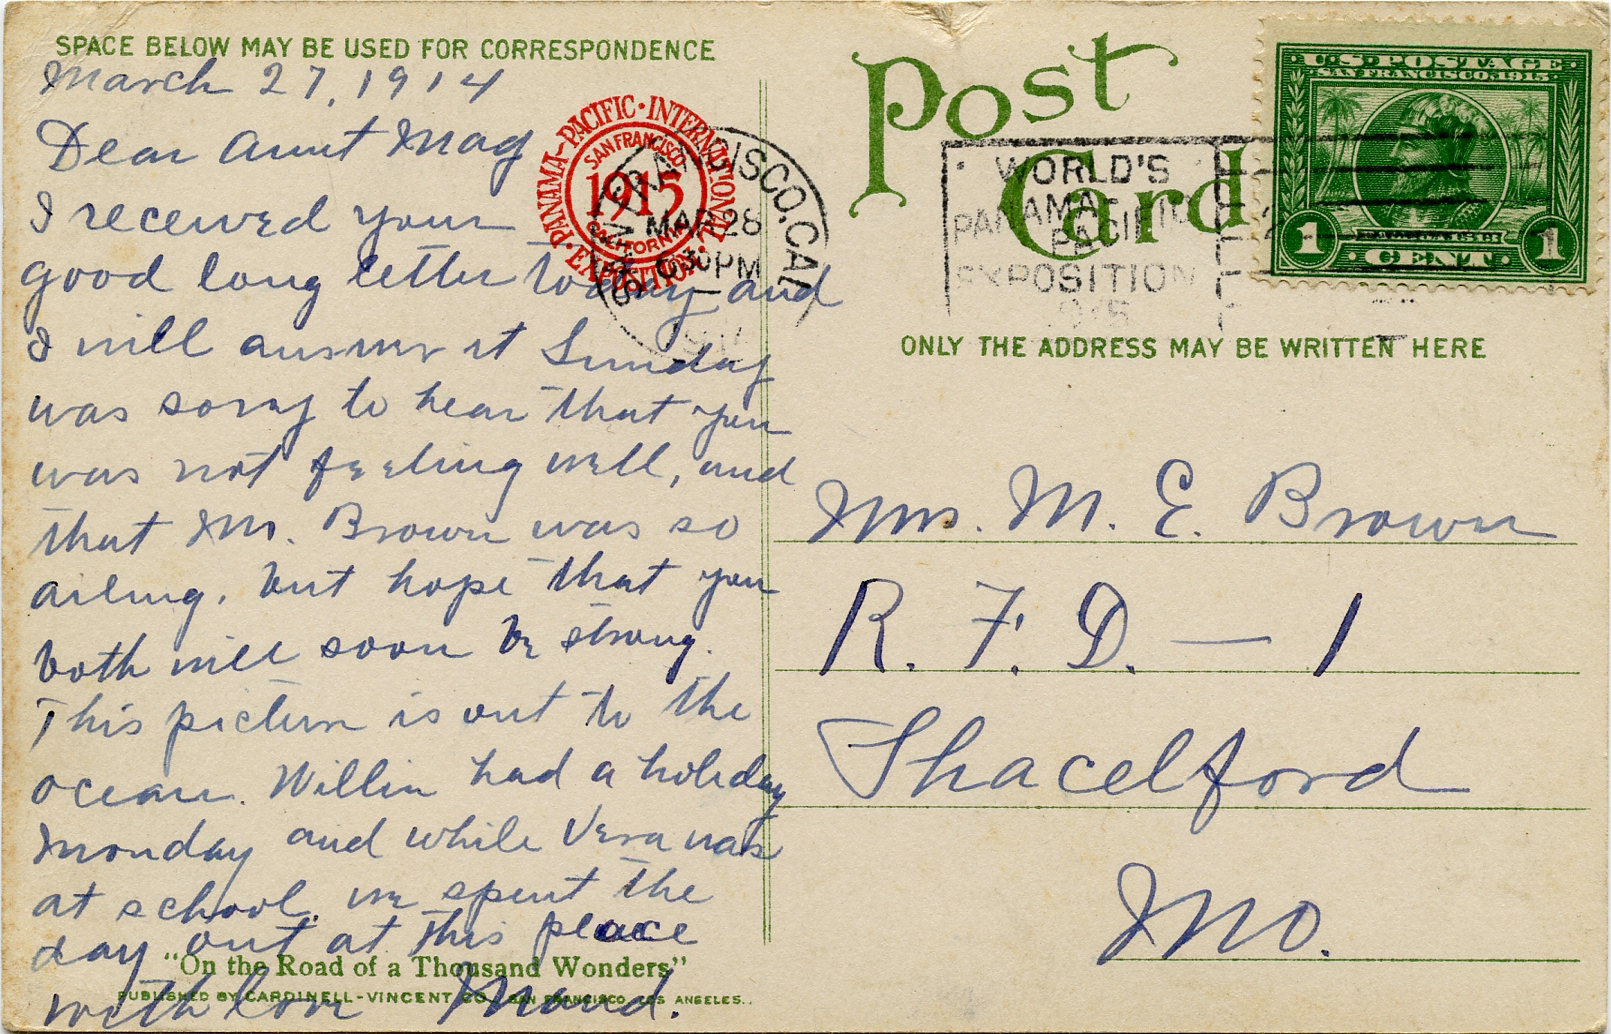 SPACE BELOW MAY BE USED FOR CORRESPONDENCE
March 27, 1914
Dear Aunt Mag
I received your
good long letter today and
I will answer it Sunday
was sorry to hear that you
was not feeling well, and
that Mr. Brown was so
ailing. but hope that you
both will soon be strong.
This picture is out to the
ocean. Willie had a holiday
Monday and while Vera was
at school. we spent the
day out at this place
with love Maud.
"On the Road of a Thousand Wonders"
PUBLISHED BY CARDINELL-VINCENT CO., SAN FRANCISCO, LOS ANGELES.
PANAMA-PACIFIC·INTERNATIONAL·EXPOSITION·
SAN FRANCISCO
1915
CALIFORNIA
SAN FRANCISCO, CAL.
MAR 28
630PM
1914
Post
Card
WORLD'S
PANAMA-PACIFIC
EXPOSITION
1915
U·S·POSTAGE
SAN FRANCISCO, 1915
1 CENT 1
ONLY THE ADDRESS MAY BE WRITTEN HERE
Mrs. M. E. Brown
R. F. D. — 1
Shacelford
Mo.